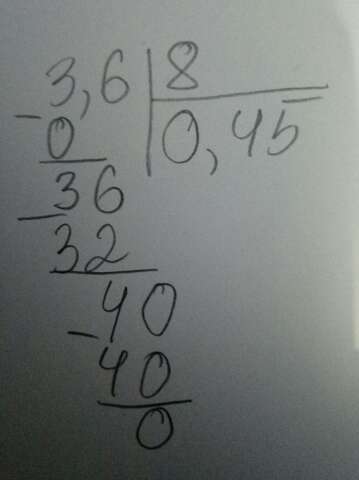 3,6 | 8
- 0 | 0,45
36
- 32
40
- 40
0